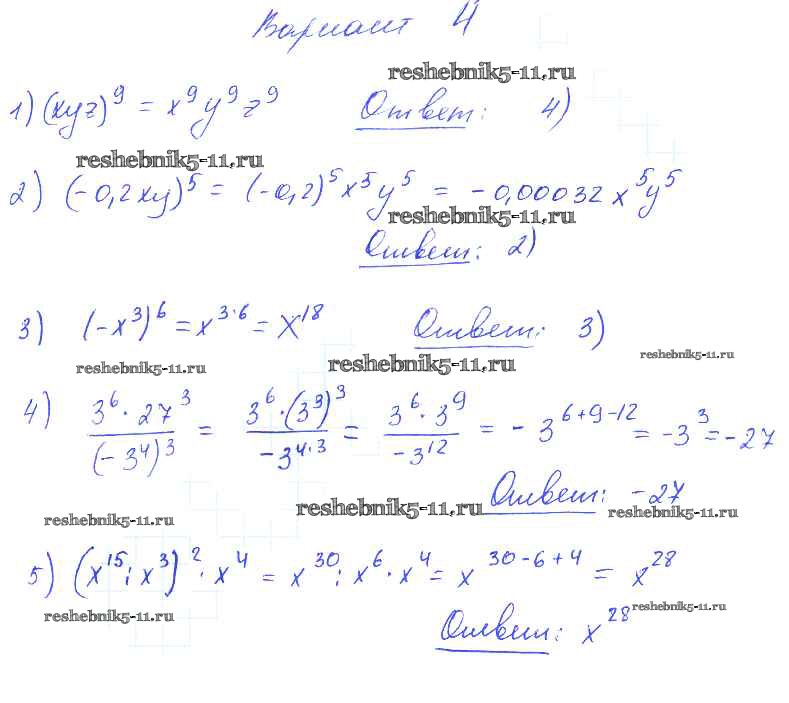 Вариант 4
reshebnik5-11.ru
1) (xyz)⁹ = x⁹y⁹z⁹ Ответ: 4)
reshebnik5-11.ru
2) (-0,2xy)⁵ = (-0,2)⁵x⁵y⁵ = -0,00032x⁵y⁵
reshebnik5-11.ru
Ответ: 2)
3) (-x³)⁶ = x³·⁶ = x¹⁸ Ответ: 3)
reshebnik5-11.ru reshebnik5-11.ru reshebnik5-11.ru
4) 3⁶·27³/(-3⁴)³ = 3⁶·(3³)³/-3⁴·³ = 3⁶·3⁹/-3¹² = -3⁶⁺⁹⁻¹² = -3³ = -27
Ответ: -27
reshebnik5-11.ru reshebnik5-11.ru reshebnik5-11.ru
5) (x¹⁵:x³)²·x⁴ = x³⁰:x⁶·x⁴ = x³⁰⁻⁶⁺⁴ = x²⁸
reshebnik5-11.ru reshebnik5-11.ru
Ответ: x²⁸